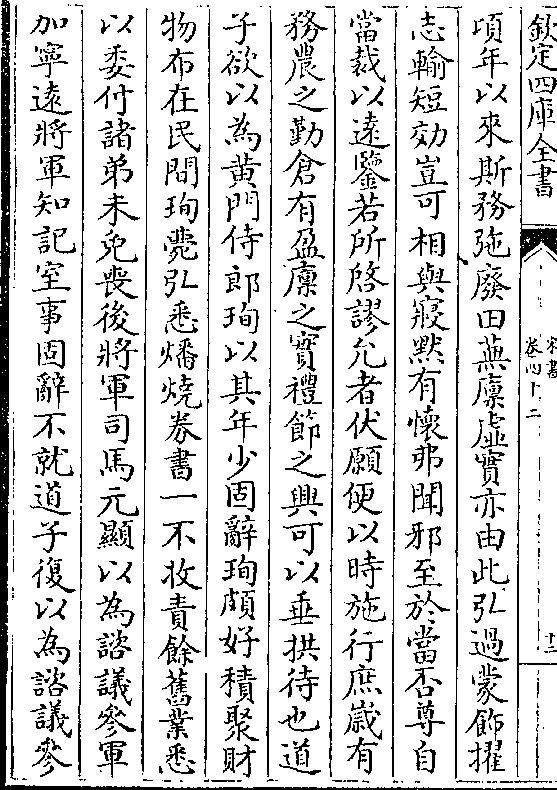 欽定四庫全書
宋書
卷四十二
十三
項年以來斯務弛廢田蕪廪虛實亦由此弘過蒙飾擢
志輸短効豈可相與寢黙有懷弗聞邪至於當否尊自
當裁以遠鑒若所啓謬允者伏願便以時施行庶嵗有
務農之勤倉有盈廪之寳禮節之興可以垂拱待也道
子欲以為黄門侍郎珣以其年少固辭珣頗好積聚財
物布在民間珣薨弘悉燔燒券書一不收責餘舊業悉
以委付諸弟未免喪後將軍司馬元顯以為諮議參軍
加寧逺將軍知記室事固辭不就道子復以為諮議參